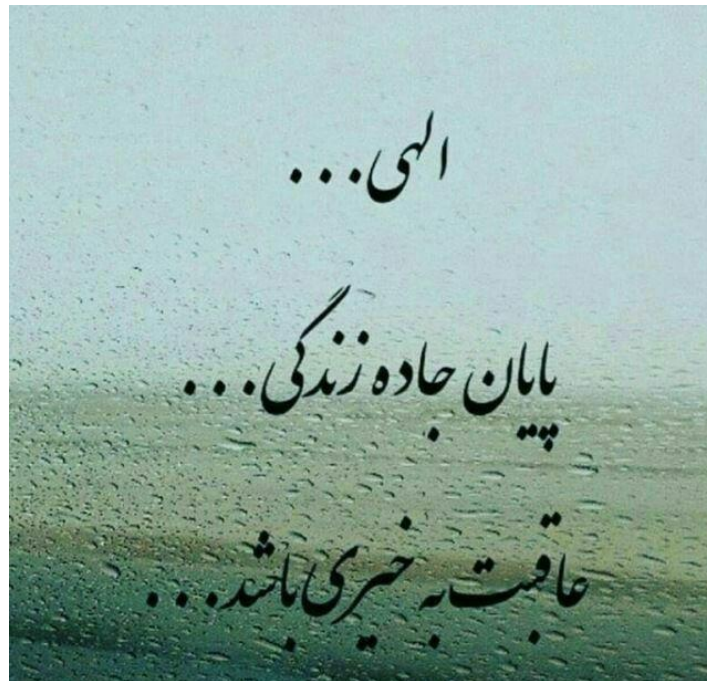 الهی...
پایان جاده زندگی...
عاقبت به خیری باشد...